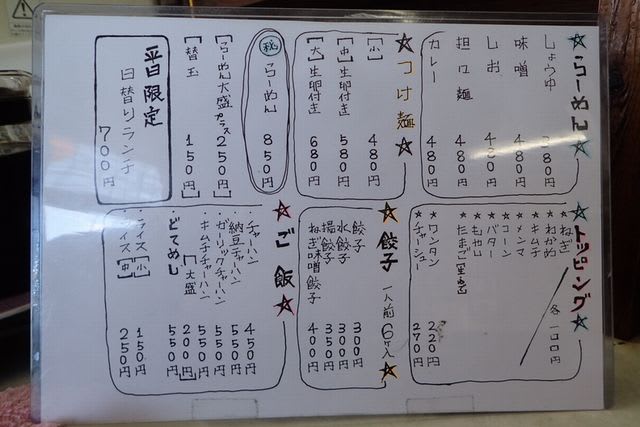 ☆らーめん☆
しょうゆ 380円
味噌 480円
しお 480円
担々麺 480円
カレー 480円
☆つけ麺☆
[小] 480円
[中]生卵付き 580円
[大]生卵付き 680円
㊙らーめん 850円
[らーめん大盛プラス250円]
[替玉 150円]
平日限定
日替りランチ
700円
☆トッピング☆
★ねぎ
★わかめ
★キムチ
★メンマ
★コーン
★バター
★もやし
★たまご
各一〇〇円
★ワンタン 220円
★チャーシュー 270円
☆餃子 一人前6ヶ入☆
餃子 300円
水餃子 300円
揚餃子 350円
ねぎ味噌餃子 400円
☆ご飯☆
チャーハン 450円
納豆チャーハン 550円
ガーリックチャーハン 550円
キムチチャーハン 550円
[大盛 200円]
・どてめし 550円
・ライス[小] 150円
・ライス[中] 250円